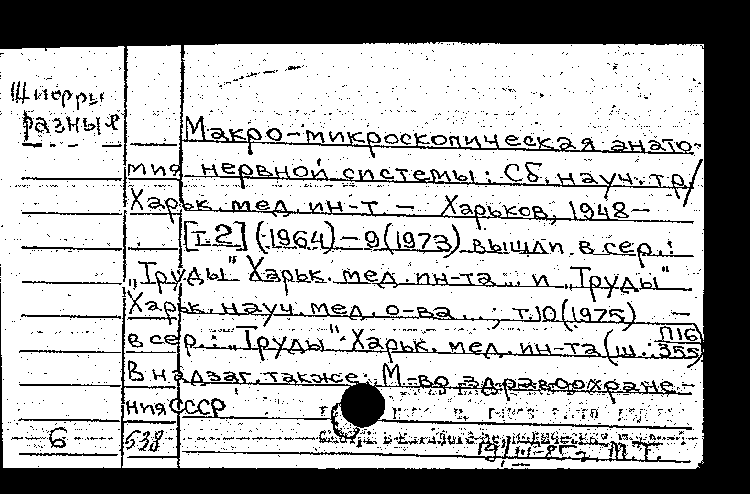 Шифры
разные
Макро-микроскопическая анато-
мия нервной системы: Сб. науч. тр/
Харьк. мед. ин-т. — Харьков, 1948—
[т.2] (1964) — 9 (1973) вышли в сер.:
„Труды" Харьк. мед. ин-та... и „Труды"
Харьк. науч. мед. о-ва...; т.10 (1975) —
в сер.: „Труды" Харьк. мед. ин-та (ш. П16/355)
В надзаг. также: М-во здравоохране-
ния СССР
6 538
19/III-85 г. М.Т.